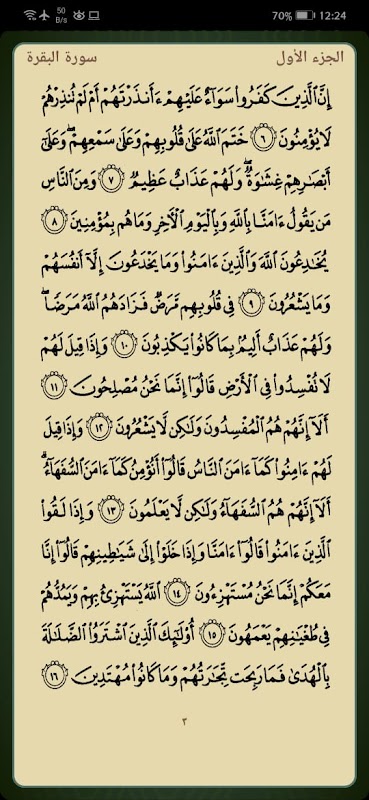 50 B/s 70% 12:24
الجزء الأول سورة البقرة
إِنَّ ٱلَّذِينَ كَفَرُوا۟ سَوَآءٌ عَلَيْهِمْ ءَأَنذَرْتَهُمْ أَمْ لَمْ تُنذِرْهُمْ
لَا يُؤْمِنُونَ ٦ خَتَمَ ٱللَّهُ عَلَىٰ قُلُوبِهِمْ وَعَلَىٰ سَمْعِهِمْ ۖ وَعَلَىٰٓ
أَبْصَٰرِهِمْ غِشَٰوَةٌ ۖ وَلَهُمْ عَذَابٌ عَظِيمٌ ٧ وَمِنَ ٱلنَّاسِ
مَن يَقُولُ ءَامَنَّا بِٱللَّهِ وَبِٱلْيَوْمِ ٱلْءَاخِرِ وَمَا هُم بِمُؤْمِنِينَ ٨
يُخَٰدِعُونَ ٱللَّهَ وَٱلَّذِينَ ءَامَنُوا۟ وَمَا يَخْدَعُونَ إِلَّآ أَنفُسَهُمْ
وَمَا يَشْعُرُونَ ٩ فِى قُلُوبِهِم مَّرَضٌ فَزَادَهُمُ ٱللَّهُ مَرَضًا ۖ
وَلَهُمْ عَذَابٌ أَلِيمٌۢ بِمَا كَانُوا۟ يَكْذِبُونَ ١٠ وَإِذَا قِيلَ لَهُمْ
لَا تُفْسِدُوا۟ فِى ٱلْأَرْضِ قَالُوٓا۟ إِنَّمَا نَحْنُ مُصْلِحُونَ ١١
أَلَآ إِنَّهُمْ هُمُ ٱلْمُفْسِدُونَ وَلَٰكِن لَّا يَشْعُرُونَ ١٢ وَإِذَا قِيلَ
لَهُمْ ءَامِنُوا۟ كَمَآ ءَامَنَ ٱلنَّاسُ قَالُوٓا۟ أَنُؤْمِنُ كَمَآ ءَامَنَ ٱلسُّفَهَآءُ ۗ
أَلَآ إِنَّهُمْ هُمُ ٱلسُّفَهَآءُ وَلَٰكِن لَّا يَعْلَمُونَ ١٣ وَإِذَا لَقُوا۟
ٱلَّذِينَ ءَامَنُوا۟ قَالُوٓا۟ ءَامَنَّا وَإِذَا خَلَوْا۟ إِلَىٰ شَيَٰطِينِهِمْ قَالُوٓا۟ إِنَّا
مَعَكُمْ إِنَّمَا نَحْنُ مُسْتَهْزِءُونَ ١٤ ٱللَّهُ يَسْتَهْزِئُ بِهِمْ وَيَمُدُّهُمْ
فِى طُغْيَٰنِهِمْ يَعْمَهُونَ ١٥ أُو۟لَٰٓئِكَ ٱلَّذِينَ ٱشْتَرَوُا۟ ٱلضَّلَٰلَةَ
بِٱلْهُدَىٰ فَمَا رَبِحَت تِّجَٰرَتُهُمْ وَمَا كَانُوا۟ مُهْتَدِينَ ١٦
٣